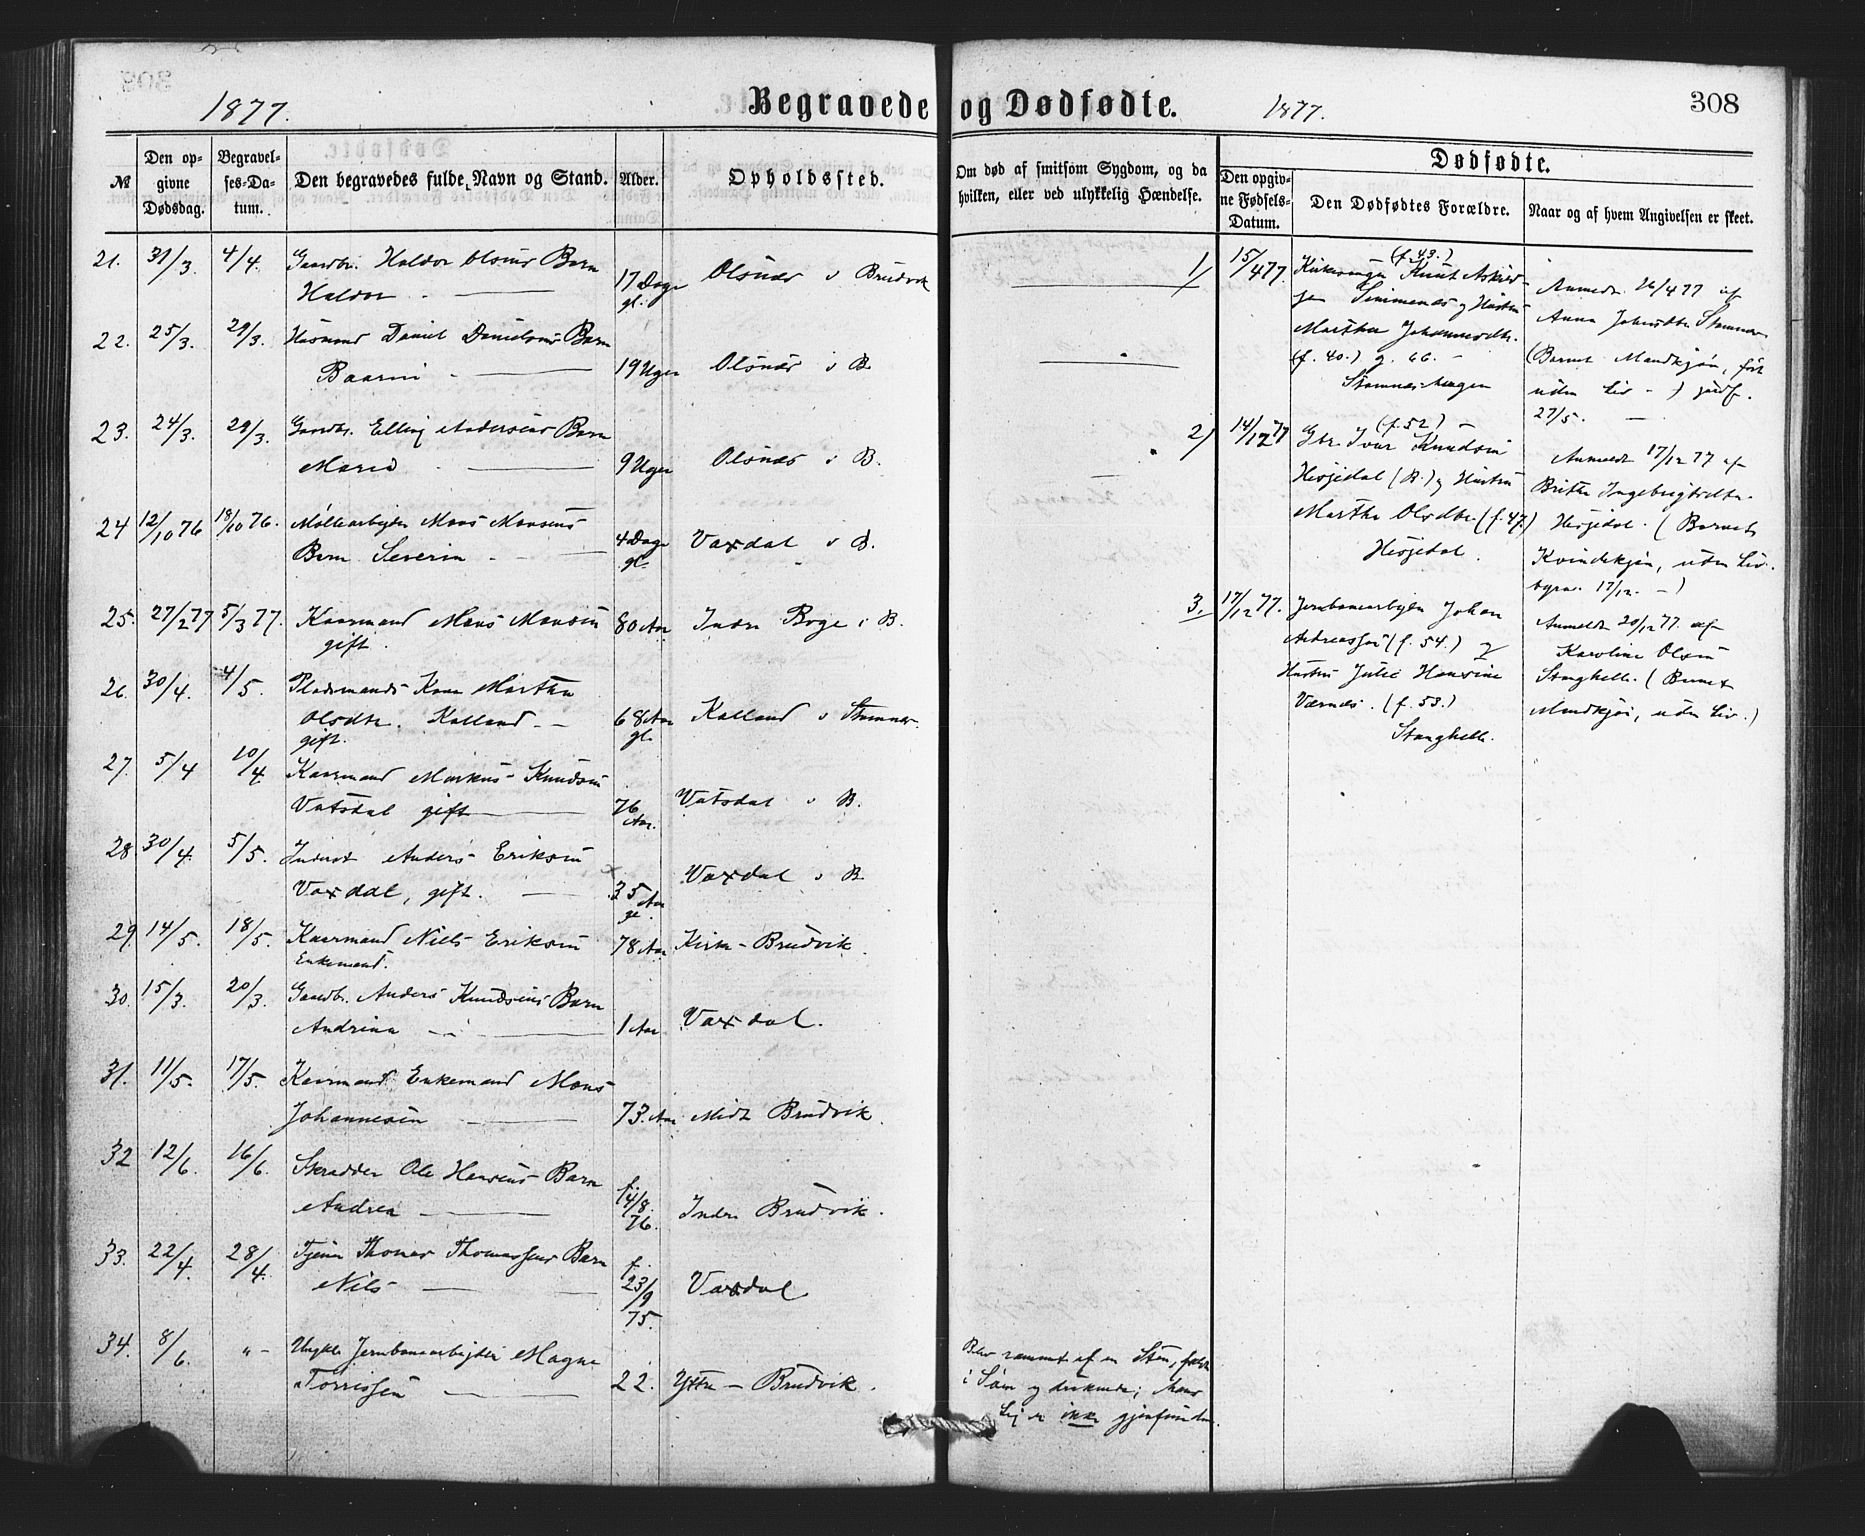 1877.
Begravede og Dødfødte.
1877.
308
№
Den opgivne Dødsdag.
Begravelses-Datum.
Den begravedes fulde Navn og Stand.
Alder.
Opholdssted.
Om død af smitsom Sygdom, og da
hvilken, eller ved ulykkelig Hændelse.
Dødfødte.
Den opgivne Fødsels-Datum.
Den Dødfødtes Forældre.
Naar og af hvem Angivelsen er skeet.
21. 31/3. 4/4. Gaardbr. Haldor Olsens Barn
Haldor 17 Dage gl. Olsnæs i Brudvik
22. 25/3. 29/3. Husmand Daniel Danielsens Barn
19 Uger Olsnæs i B.
23. 24/3. 29/3. Gaardbr. Elling Andersens Barn
Maria 9 Uger Olsnæs i B.
24 12/10 76 18/10 76. Møllearbejder Mons Monsens
Barn Severin 4 Dage gl. Vaxdal i B.
25. 27/2 77 5/3 77. Kaarmand Mons Monsen
gift. 80 Aar Indre Boge i B.
26. 30/4. 4/5. Pladsmands Kone Martha
Olsdtr. Kalland
gift. 68 Aar gl. Kalland i Stamnes.
27. 5/4 10/4. Kaarmand Markus Knudsen
Vatsdal gift 76 Aar. Vatsdal i B.
28 30/4. 5/5. Inderst Anders Eriksen
Vaxdal, gift. 35 Aar gl. Vaxdal i B.
29. 14/5. 18/5. Kaarmand Niels Eriksen
Enkemand. 78 Aar Kirke-Brudvik.
30. 15/3. 20/3. Gaardbr. Anders Knudsens Barn
Andrina 1 Aar Vaxdal.
31. 11/5. 17/5. Kaarmand Enkemand Mons
Johannesen 73 Aar Midt Brudvik.
32 12/6. 16/6. Skrædder Ole Hansens Barn
Andrea f. 14/8. 76. Indre Brudvik.
33. 22/4. 28/4. Tjener Thomas Thomassens Barn
Nils f. 23/9 75. Vaxdal
34. 8/6. " - Ungkl. Jernbanearbejder Magne
Torrissen 22. Yttre-Brudvik.
Blev rammet af en Sten, faldt
i Søen og druknede; hans
Lig er ikke gjenfundet.
1) 15/4 77. (f. 43.)
Kirkesanger Knut Askildsen
Simmenes og Hustru
Martha Johannesdtr.
(f. 40.) g. 66.
Stamneshaugen
Anmeldt 26/4 77 af
Anna Stamnes
(Barnet Mandkjøn, født
uden Liv -) jordf.
27/5.
2) 14/12 77 (f. 52)
Gbr. Ivar Knudsen
Hesjedal (B.) og Hustru
Martha Olsdtr. (f. 47.)
Hesjedal.
Anmeldt 17/12 77 af
Britha Ingebrigtsdtr.
Hesjedal. (Barnets
Kvindekjøn, uden Liv.
17/12. -)
3. 17/12 77. Jernbanearbejder Johan
Andreassen (f. 54.) og
Hustru Julie Hansine
Værnes. (f. 53.)
Stanghelle.
Anmeldt 20/12 77. af
Karoline Olsen
Stanghelle. (Barnet
Mandkjøn, uden Liv.)